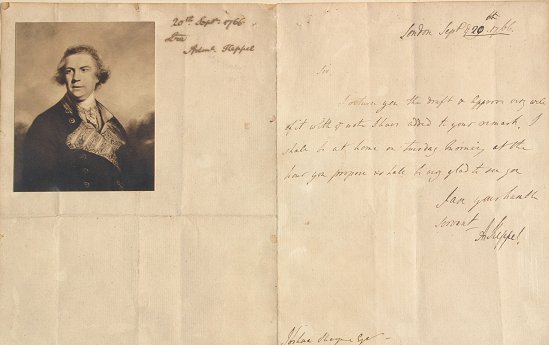 20th Sept. 1766
Adml. Keppel
London Sept. ye 20th 1766.
Sir
I return you the draft & approve very well
of it with ye note I have added to your remark. I
shall be at home on Tuesday Morning at the
hour you propose & shall be very glad to see you
I am your humble
servant
A Keppel.
Joshua Sharpe Esqr